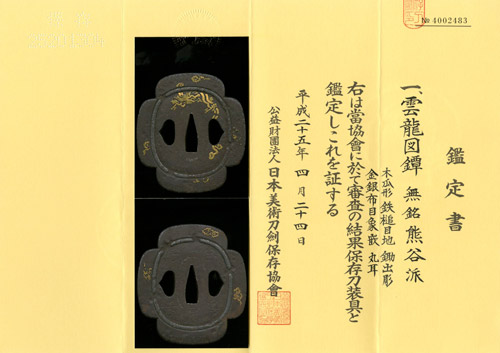 № 4002483
鑑定書
一、雲龍図鐔 無銘 熊谷派
木瓜形 鉄槌目地 鋤出彫
金銀布目象嵌 丸耳
右は當協會に於て審査の結果保存刀装具と
鑑定しこれを証する
平成二十五年 四月二十四日
公益財團法人 日本美術刀劍保存協會